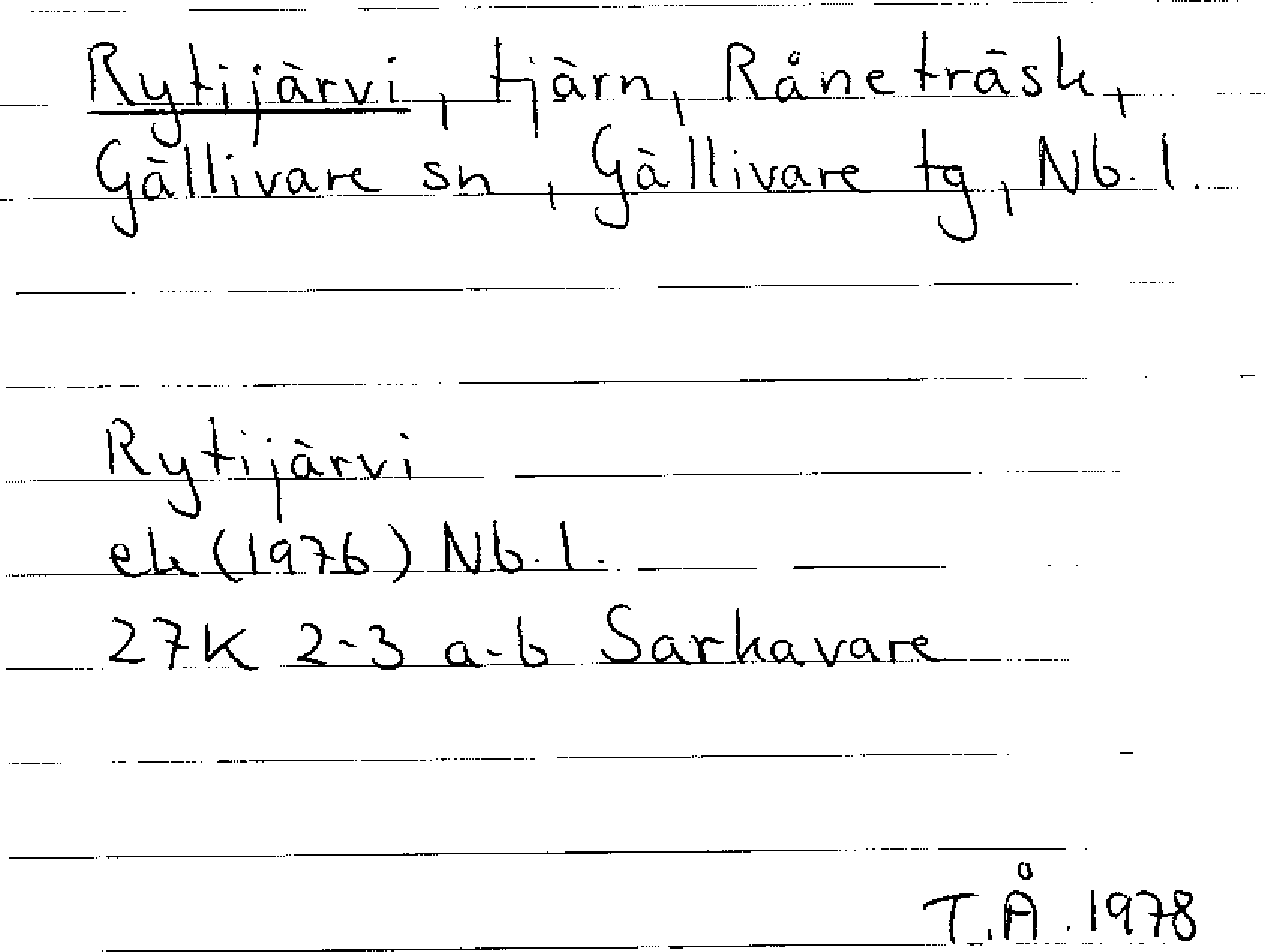 Rytijärvi, tjärn, Råneträsk,
Gällivare sn, Gällivare tg, Nb.l.
Rytijärvi
ek (1976) Nb.l.
27K 2-3 a-b Sarkavare
T.Å. 1978